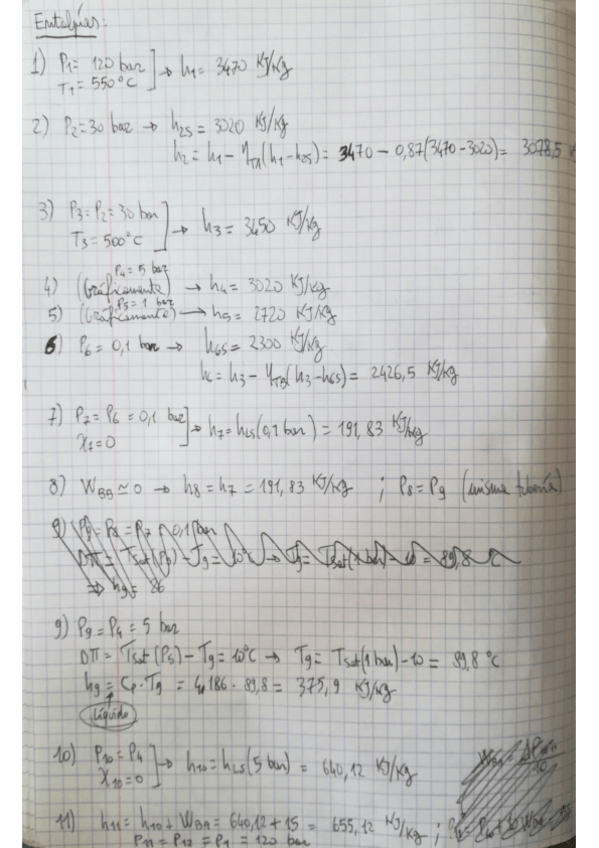 Entalpías:
1) P1 = 120 bar
T1 = 550°C ] → h1 = 3470 KJ/Kg
2) P2 = 30 bar → h2s = 3020 KJ/Kg
h2 = h1 - ηTA(h1-h2s) = 3470 - 0,87(3470-3020) = 3078,5 K
3) P3 = P2 = 30 bar
T3 = 500°C ] → h3 = 3450 KJ/Kg
P4 = 5 bar
4) (Gráficamente) → h4 = 3020 KJ/Kg
P5 = 1 bar
5) (Gráficamente) → h5 = 2720 KJ/Kg
6) P6 = 0,1 bar → h6s = 2300 KJ/Kg
h6 = h3 - ηTB(h3-h6s) = 2426,5 KJ/Kg
7) P7 = P6 = 0,1 bar
X7=0 ] → h7 = hLS(0,1 bar) = 191,83 KJ/Kg
8) WBB ≃ 0 → h8 = h7 = 191,83 KJ/Kg ; P8 = P9 (misma tubería)
9) P9 = P8 = P7 0,1 bar
DTT = Tsat(P5) - T9 = 10°C → T9 = Tsat(1 bar) - 10 = 89,8 °C
⇒ h9 = 86
9) P9 = P4 = 5 bar
DTT = Tsat(P5) - T9 = 10°C → T9 = Tsat(1 bar) - 10 = 89,8 °C
h9 = Cp·T9 = 4,186 · 89,8 = 375,9 KJ/Kg
Líquido
10) P10 = P4
X10 = 0 ] → h10 = hLS(5 bar) = 640,12 KJ/Kg
11) h11 = h10 + WBA = 640,12 + 15 = 655,12 KJ/Kg ;
P11 = P12 = P1 = 120 bar